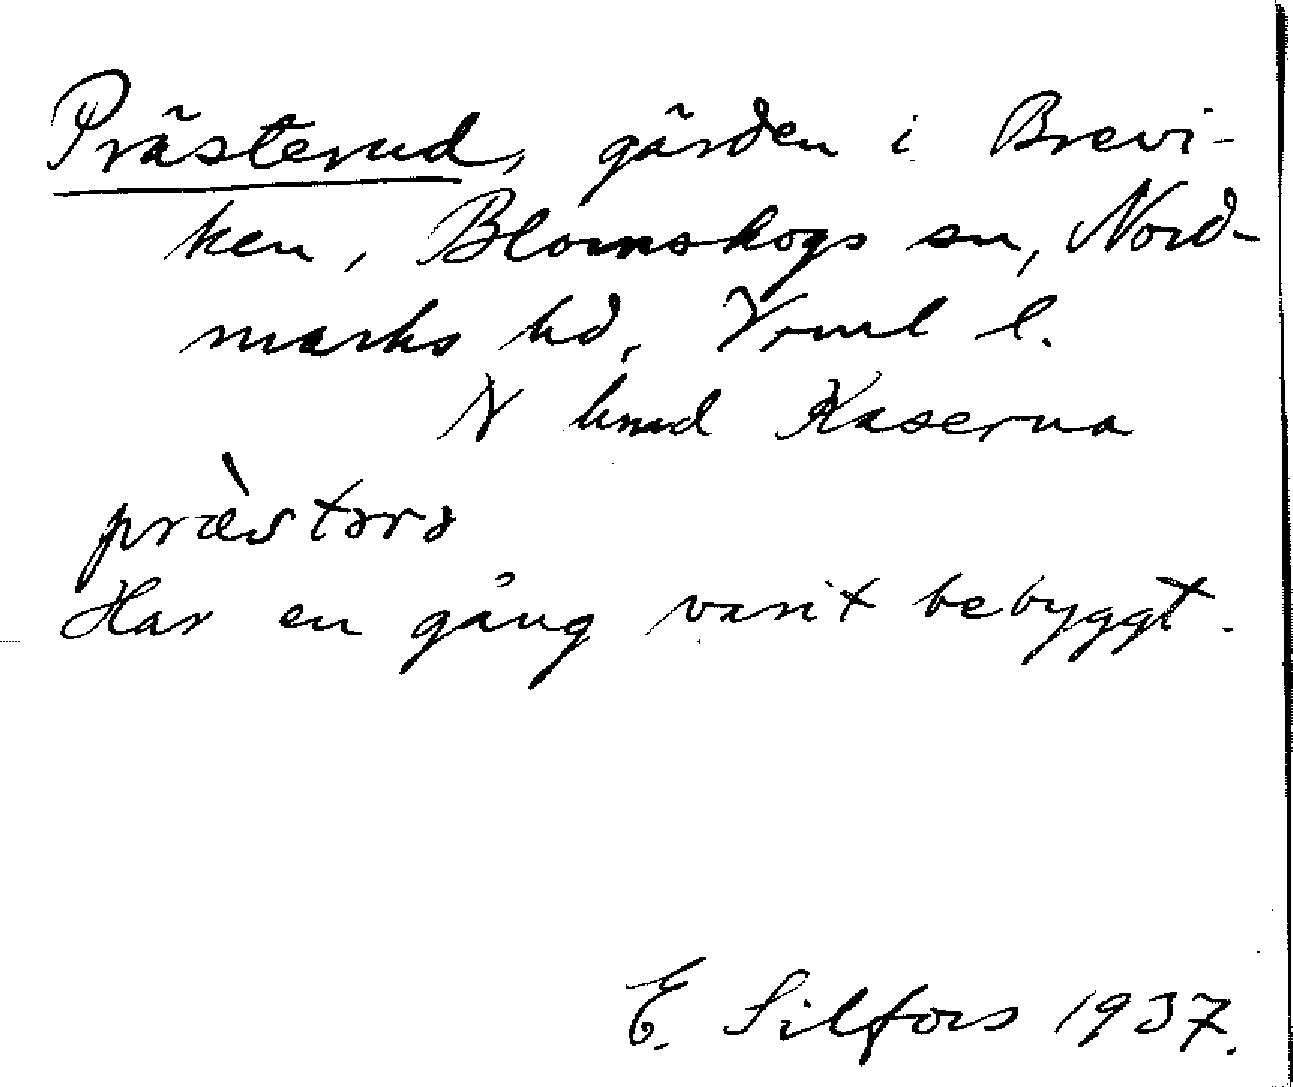 Prästerud, gärden i Brevi-
ken, Blomskogs sn, Nord-
marks hd, Vrml l.
N kund Kaserna
prästərə
Har en gång varit bebyggt.
E. Silfors 1937.